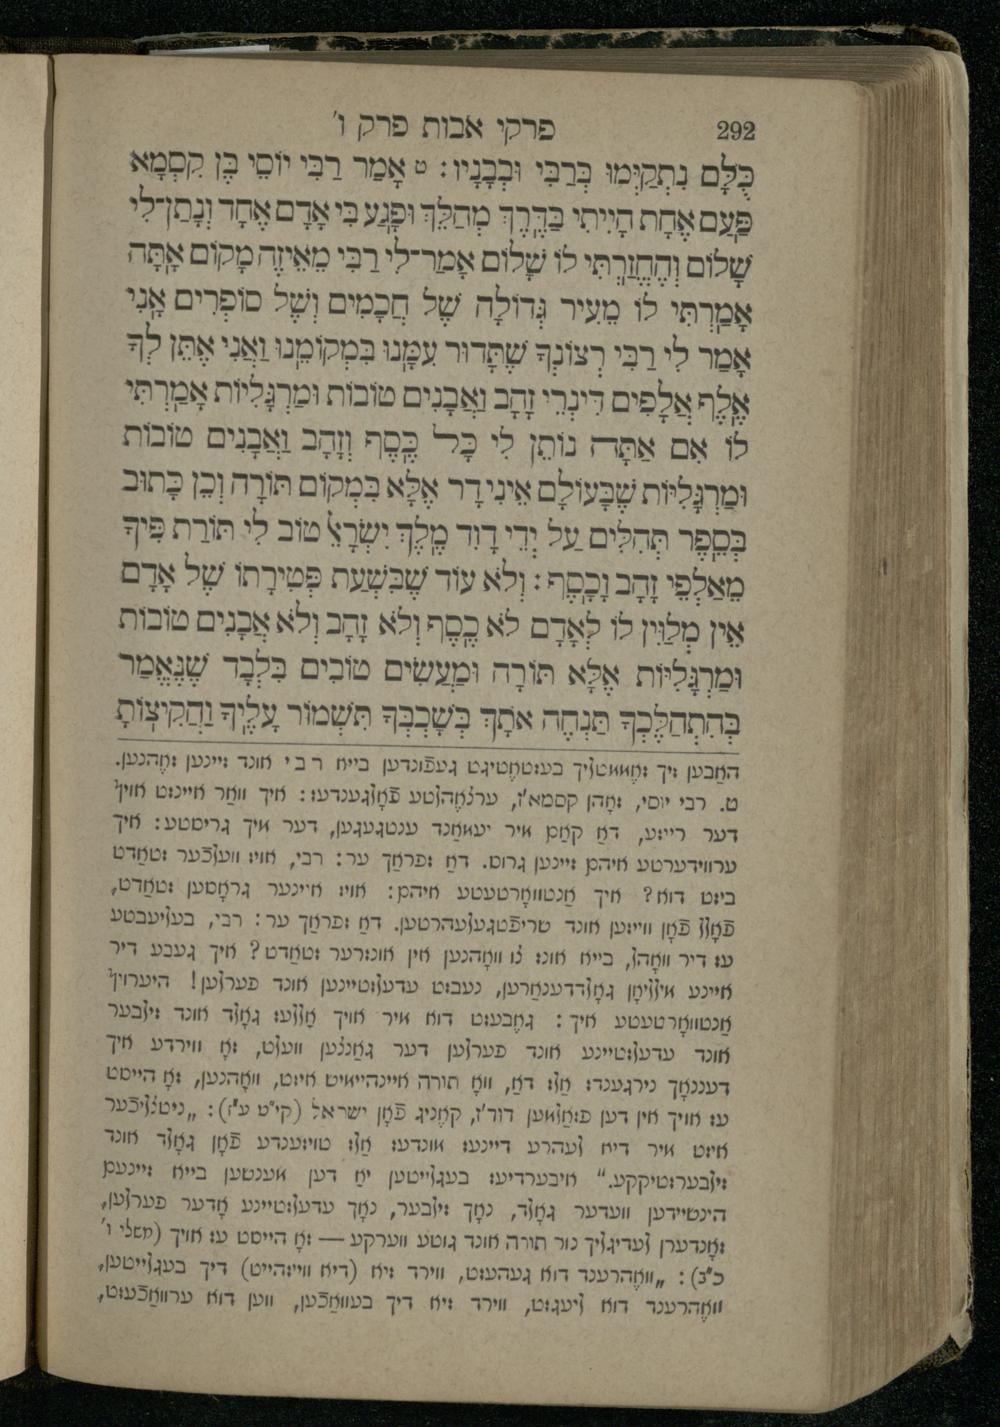 292 פרקי אבות פרק ו׳
כֻּלָּם נִתְקַיְּמוּ בְּרַבִּי וּבְבָנָיו : ט אָמַר רַבִּי יוֹסֵי בֶּן קִסְמָא
פַּעַם אֶחָת הָיִיתִי בַּדֶּרֶךְ מְהַלֵּךְ וּפָגַע בִּי אָדָם אֶחָד וְנָתַן־לִי
שָׁלוֹם וְהֶחֱזַרְתִּי לוֹ שָׁלוֹם אָמַר־לִי רַבִּי מֵאֵיזֶה מָקוֹם אָתָּה
אָמַרְתִּי לוֹ מֵעִיר גְּדוֹלָה שֶׁל חֲכָמִים וְשֶׁל סוֹפְרִים אָנִי
אָמַר לִי רַבִּי רְצוֹנְךָ שֶׁתָּדוּר עִמָּנוּ בִּמְקוֹמֵנוּ וַאֲנִי אֶתֵּן לְךָ
אֶלֶף אֲלָפִים דִּינְרֵי זָהָב וַאֲבָנִים טוֹבוֹת וּמַרְגָּלִיּוֹת אָמַרְתִּי
לוֹ אִם אַתָּה נוֹתֵן לִי כָּל כֶּסֶף וְזָהָב וַאֲבָנִים טוֹבוֹת
וּמַרְגָּלִיּוֹת שֶׁבָּעוֹלָם אֵינִי דָר אֶלָּא בִּמְקוֹם תּוֹרָה וְכֵן כָּתוּב
בְּסֵפֶר תְּהִלִּים עַל יְדֵי דָוִד מֶלֶךְ יִשְׂרָאֵל טוֹב לִי תּוֹרַת פִּיךָ
מֵאַלְפֵי זָהָב וָכָסֶף : וְלֹא עוֹד שֶׁבִּשְׁעַת פְּטִירָתוֹ שֶׁל אָדָם
אֵין מְלַוִּין לוֹ לְאָדָם לֹא כֶסֶף וְלֹא זָהָב וְלֹא אֲבָנִים טוֹבוֹת
וּמַרְגָּלִיּוֹת אֶלָּא תּוֹרָה וּמַעֲשִׂים טוֹבִים בִּלְבָד שֶׁנֶּאֱמַר
בְּהִתְהַלֶּכְךָ תַּנְחֶה אֹתָךְ בְּשָׁכְבְּךָ תִּשְׁמוֹר עָלֶיךָ וַהֲקִיצוֹתָ
האַבען זיך זאֶממטליך בעשטאֶטיגט געפֿונדען בייא רבי אונד זיינען זאֶהנען.
ט. רבי יוסי, זאָהן קסמא׳ז, ערצאֶהלטע פֿאָלגענדעז: איך וואַר איינזט אויף
דער רייזע, דאַ קאַם מיר יעמאַנד ענטגעגען, דער מיך גריסטע: איך
ערווידערטע איהם זיינען גרוס. דאַ זפראַך ער: רבי, אויז וועלכֿער שטאַדט
ביזט דוא? איך אַנטוואָרטעטע איהם: אויז איינער גראָסען שטאַדט,
פֿאָלל פֿאָן ווייזען אונד שריפֿטגעלעהרטען. דאַ זפראַך ער: רבי, בעליעבטע
עז דיר וואָהל, בייא אונז צו וואָהנען אין אונזרער שטאַדט? איך געבע דיר
איינע מילליאָן גאָלדדענאַרען, נעבזט עדעלזטיינען אונד פערלען! היערויף
אַנטוואָרטעטע איך: גאֶבעזט דוא מיר אויך אַללעז גאָלד אונד זילבער
אונד עדעלזטיינע אונד פערלען דער גאַנצען וועלט, זאָ ווירדע איך
דעננאָך נירגענדז אַלז דאַ, וואָ תורה איינהיימיש איזט, וואָהנען, זאָ הייסט
עז אויך אין דען פזאַלמען דוד׳ז, קאֶניג פֿאָן ישראל (קי״ט ע״ז): „ניטצליכֿער
איזט מיר דיא לעהרע דיינעז מונדעז אַלז טויזענדע פֿאָן גאָלד אונד
זילבערשטיקקע.“ איבערדיעז בעגלייטען יאַ דען מענשען בייא זיינעם
הינשיידען וועדער גאָלד, נאָך זילבער, נאָך עדעלזטיינע אָדער פערלען,
זאָנדערן לעדיגליך נור תורה אונד גוטע ווערקע — זאָ הייסט עז אויך (משלי ו׳
כ״ב): „וואֶהרענד דוא געהעזט, ווירד זיא (דיא ווייזהייט) דיך בעגלייטען,
וואֶהרענד דוא ליעגזט, ווירד זיא דיך בעוואַכֿען, ווען דוא ערוואַכֿעזט,